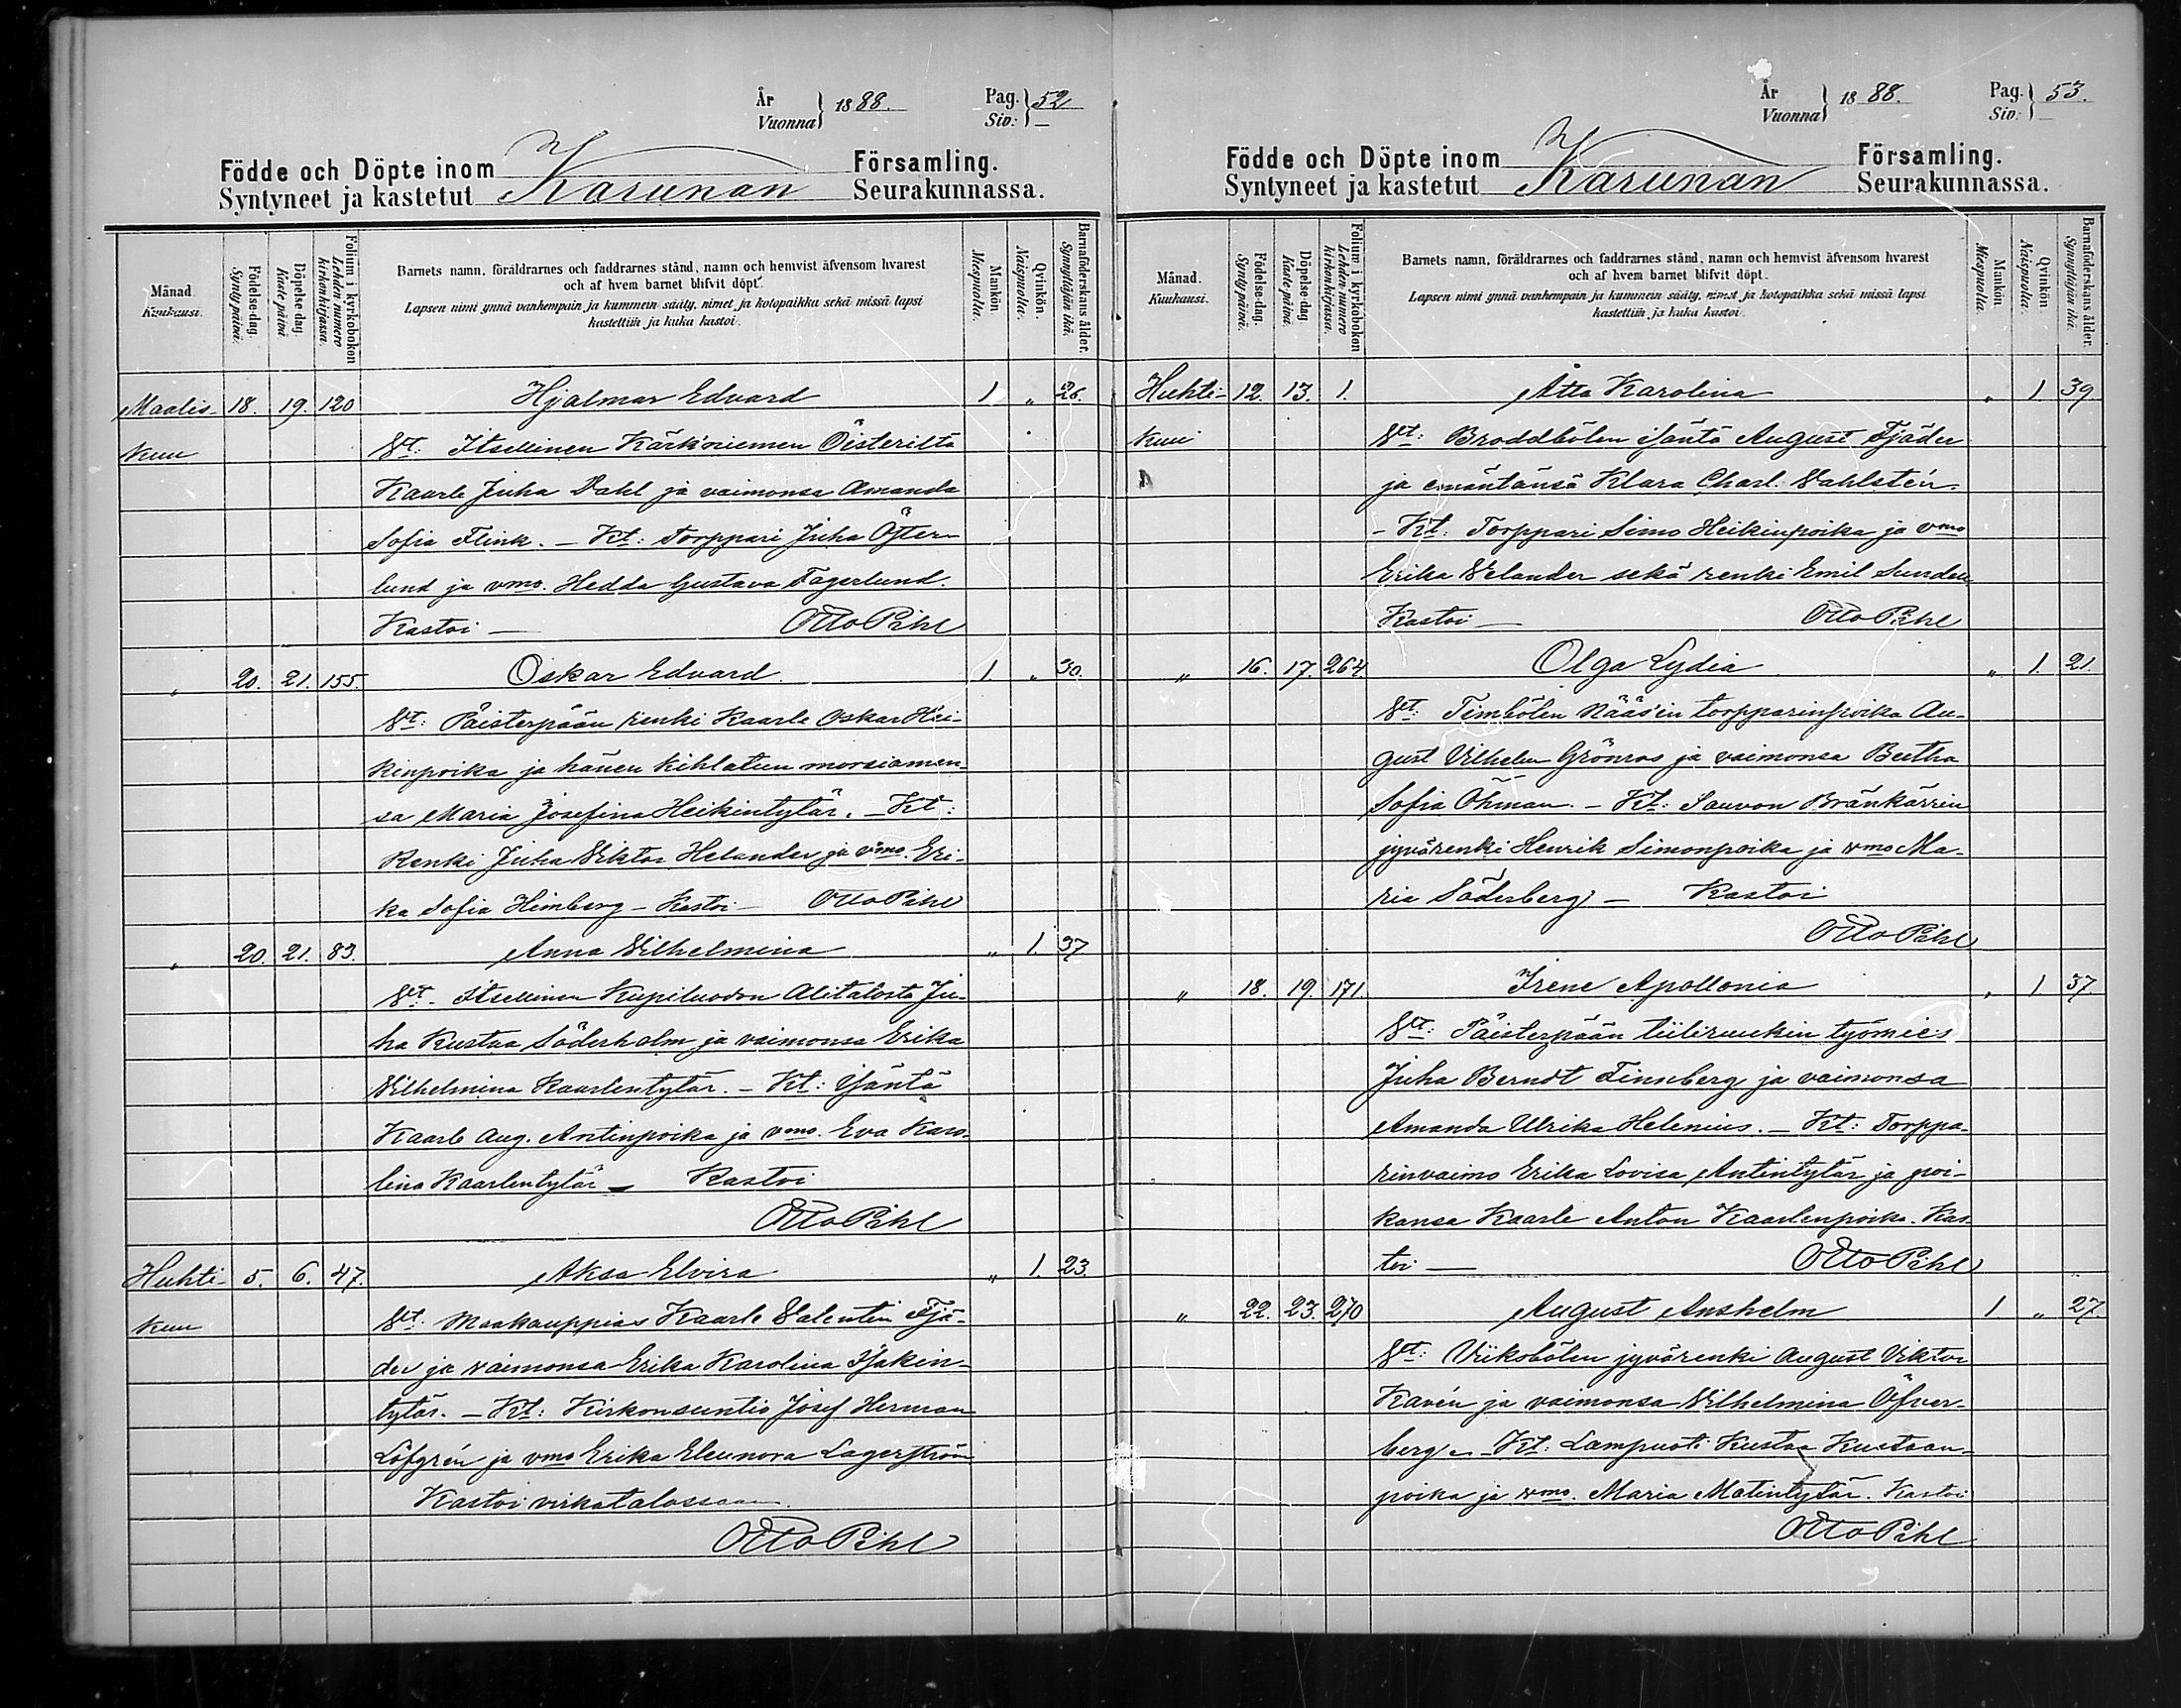 År
Vuonna } 1888. Pag. Siv: } 52
Födde och Döpte inom Karunan Församling.
Syntyneet ja kastetut Seurakunnassa.
Månad Kuukausi.
Födelse-dag. Synty päivä.
Döpelse-dag. Kaste päivä
Folium i kyrkoboken Lehden numero kirkonkirjassa.
Barnets namn, föräldrarnes och faddrarnes stånd, namn och hemvist äfvensom hvarest
och af hvem barnet blifvit döpt.
Lapsen nimi ynnä vanhempain ja kummein sääty, nimet ja kotopaikka sekä missä lapsi
kastettiin ja kuka kastoi.
Mankön Miespuolta.
Qvinkön. Naispuolta.
Barnaföderskans ålder. Synnyttäjän ikä.
Maalis- 18. 19. 120 Hjalmar Edvard 1 „ 26.
kuu Vt: Itsellinen Kärkniemen Öisteriltä
Kaarle Juha Dahl ja vaimonsa Amanda
Sofia Flink. – Kt: Torppari Juha Öster-
lund ja vmo. Hedda Gustava Fagerlund.
Kastoi — Otto Pihl
„ 20. 21. 155. Oskar Edvard 1 „ 30.
Vt: Päisterpään renki Kaarle Oskar Hei-
kinpoika ja hänen kihlatun morsiamen-
sa Maria Josefina Heikintytär. – Kt:
Renki Juha Viktor Helander ja vmo. Eri-
ka Sofia Himberg – Kastoi – Otto Pihl
„ 20. 21. 83. Anna Vilhelmina „ 1. 37
Vt- Itsellinen Kupiluodon Alitalosta Ju-
ha Kustaa Söderholm ja vaimonsa Erika
Vilhelmina Kaarlentytär. – Kt: Isäntä
Kaarle Aug. Antinpoika ja vmo. Eva Karo-
lina Kaarlentytär – Kastoi
Otto Pihl
Huhti- 5. 6. 47. Aksa Elvira „ 1. 23.
kuu Vt. Maakauppias Kaarle Valentin Fjä-
der ja vaimonsa Erika Karolina Isakin-
tytär. – Kt: Kirkonsuntio Josef Herman
Löfgrén ja vmo Erika Eleunora Lagerström
Kastoi virkatalossaan.
Otto Pihl
År
Vuonna } 1888. Pag. Siv: } 53.
Födde och Döpte inom Karunan Församling.
Syntyneet ja kastetut Seurakunnassa.
Månad. Kuukausi.
Födelse-dag. Synty päivä.
Döpelse-dag Kaste päivä.
Folium i kyrkoboken Lehden numero kirkonkirjassa.
Barnets namn, föräldrarnes och faddrarnes stånd, namn och hemvist äfvensom hvarest
och af hvem barnet blifvit döpt.
Lapsen nimi ynnä vanhempain ja kummein sääty, nimet ja kotopaikka sekä missä lapsi
kastettiin ja kuka kastoi
Mankön Miespuolta.
Qvinkön. Naispuolta.
Barnaföderskans ålder. Synnyttäjän ikä.
Huhti- 12. 13. 1. Atta Karolina „ 1. 39
kuu Vt: Broddbölen isäntä August Fjäder
ja emäntänsä Klara Charl. Vahlstén.
– Kt: Torppari Simo Heikinpoika ja vmo
Erika Velander sekä renki Emil Sundell
Kastoi — Otto Pihl
„ 16. 17. 264. Olga Lydia „ 1. 21.
Vt: Timbölen Nääsin torpparinpoika Au-
gust Vilhelm Grönros ja vaimonsa Bertha
Sofia Öhman. – Kt: Sauvon Bränkärrin
jyvärenki Henrik Simonpoika ja vmo Ma-
ria Söderberg – Kastoi
Otto Pihl
„ 18. 19. 171. Irene Apollonia „ 1 37.
Vt: Päisterpään tiiliruukin työmies
Juha Berndt Finnberg ja vaimonsa
Amanda Ulrika Helenius. – Kt: Torppa-
rinvaimo Erika Lovisa Antintytär ja poi-
kansa Kaarle Anton Kaarlenpoika. Kas-
toi — Otto Pihl
„ 22. 23. 270 August Anshelm 1. „ 27.
Vt: Viiksbölen jyvärenki August Viktor
Kavén ja vaimonsa Vilhelmina Öfver-
berg. – Kt: Lampuoti Kustaa Kustaan-
poika ja vmo. Maria Matintytär. Kastoi
Otto Pihl